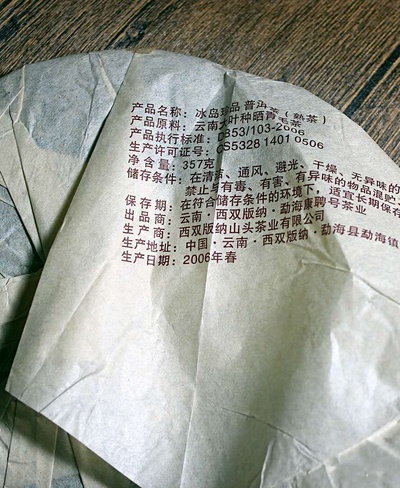 产品名称：冰岛珍品 普洱茶（熟茶）
产品原料：云南大叶种晒青毛茶
产品执行标准：DB53/103-2006
生产许可证号：QS5328 1401 0506
净含量：357克
储存条件：在清洁、通风、避光、干燥、无异味的
禁止与有毒、有害、有异味的物品混贮、
保存期：在符合储存条件的环境下，适宜长期保存
出品商：云南·西双版纳·勐海康聘号茶业
生产商：西双版纳山头茶业有限公司
生产地址：中国·云南·西双版纳·勐海县勐海镇
生产日期：2006年春